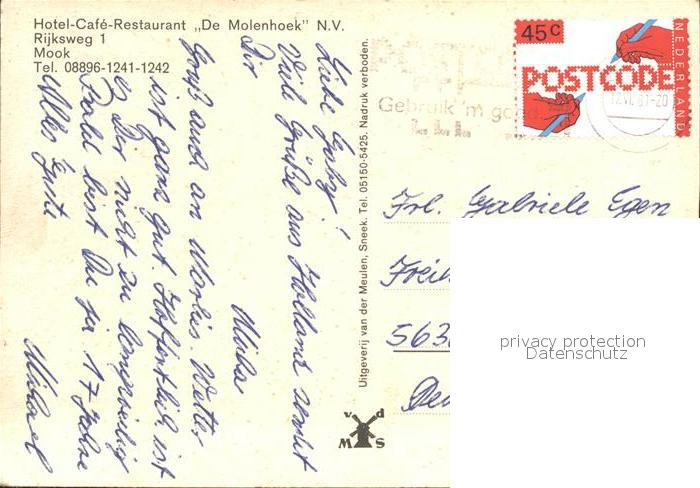 Hotel-Café-Restaurant „De Molenhoek" N.V.
Rijksweg 1
Mook
Tel. 08896-1241-1242
Liebe Gaby!
Viele Grüße aus Holland sendet
Dir
Micha
Gruß auch an Wetter
ist ganz gut. Hoffentlich ist
es Dir nicht zu langweilig
Bald bist Du ja 17 Jahre
Alles Gute
Michael
Uitgeverij van der Meulen, Sneek. Tel. 05150-5425. Nadruk verboden.
v d
M S
45c
POSTCODE
NEDERLAND
Gebruik 'm
Frl. Gabriele
563
privacy protection
Datenschutz